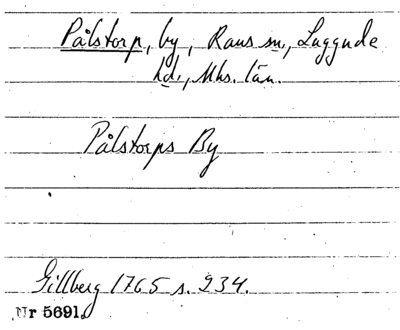 Pålstorp, by, Raus sn., Luggude
hd., Mhs. län.
Pålstorps By
Gillberg 1765 s. 234.
Nr 5691.